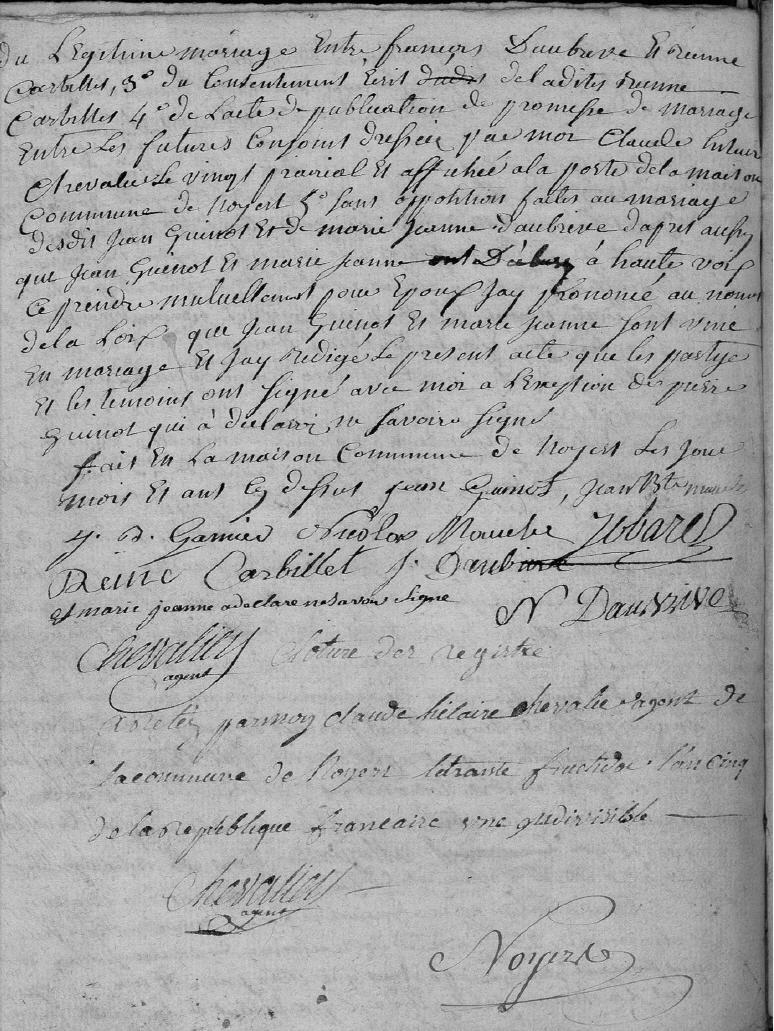 du Legitime mariage Entre françois Daubrive Et reinne
Carbillet, 3º du Consentement Ecrit de ladites reinne
Carbillet 4º de Lacte de publication de promesse de mariage
Entre Les futures Conjoint dressée par moi Claude hilair
Chevalier Le vingt prairial Et affichée a la porte de la maison
Commune de Noyert 5º Sans opposition faites au mariage
desdit Jean Guinot Et de marie Jeanne daubrive dapres aussy
que Jean Guinot Et marie jeanne à haute voix
Ce prendre mutuellement pour Epoux Jay prononcé au nom
de la Loix que Jean Guinot Et marie Jeanne sont unie
En mariage Et Jay redigé Le present acte que les partye
Et les temoins ont signé avec moi a L'Exeption de pierre
Guinot qui à declarré ne savoire signé
fait En La maison Commune de Noyert Les Jour
mois Et ant Cy dessus jean Guinot, jean Bte
j. b. Garnier Nicolas Mouche Jobard
Reine Carbillet J. Daubive
Et marie jeanne a declare ne savoir signe
N Dauvrive
Chevallier
agent
Cloture des registre
areté par moy claude hilaire chevalier agent de
la commune de Noyert le trante fructidor l'an cinq
de la republique francaire une indivisible
Chevallier
agent
Noyers